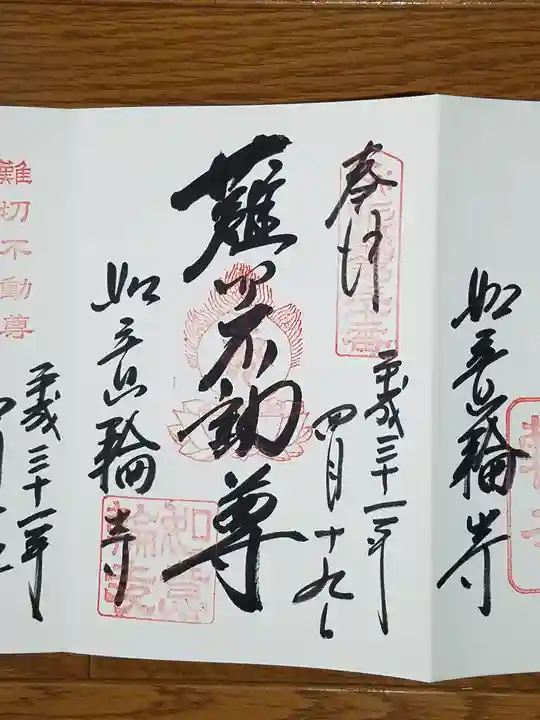 如意輪寺
奉拝
平成三十一年
四月十九日
難切不動尊
如意輪寺
如意輪寺
難切不動尊
平成三十一年